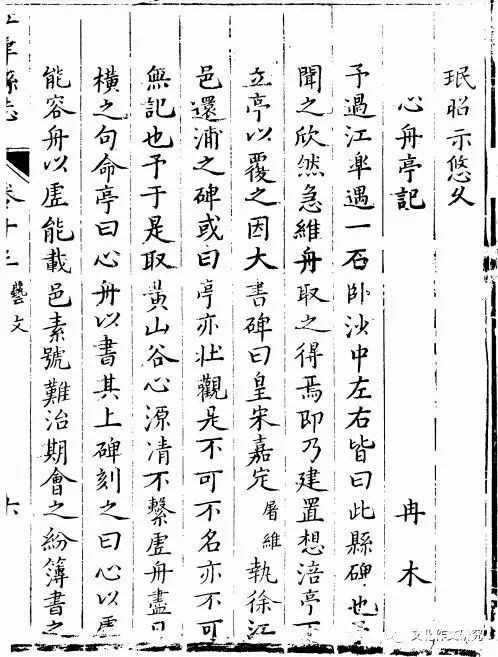 珉昭示悠久
心舟亭記 冉木
予過江率遇一石卧沙中左右皆曰此縣碑也
聞之欣然急維舟取之得焉即乃建置想涪亭下
立亭以覆之因大書碑曰皇宋嘉定屠維執徐江
邑還浦之碑或曰亭亦壯觀是不可不名亦不可
無記也予于是取黃山谷心源凊不繫虛舟盡日
橫之句命亭曰心舟以書其上碑刻之曰心以虛
能容舟以虛能載邑素號難治期會之紛簿書之
津縣志 卷十三 藝文 六